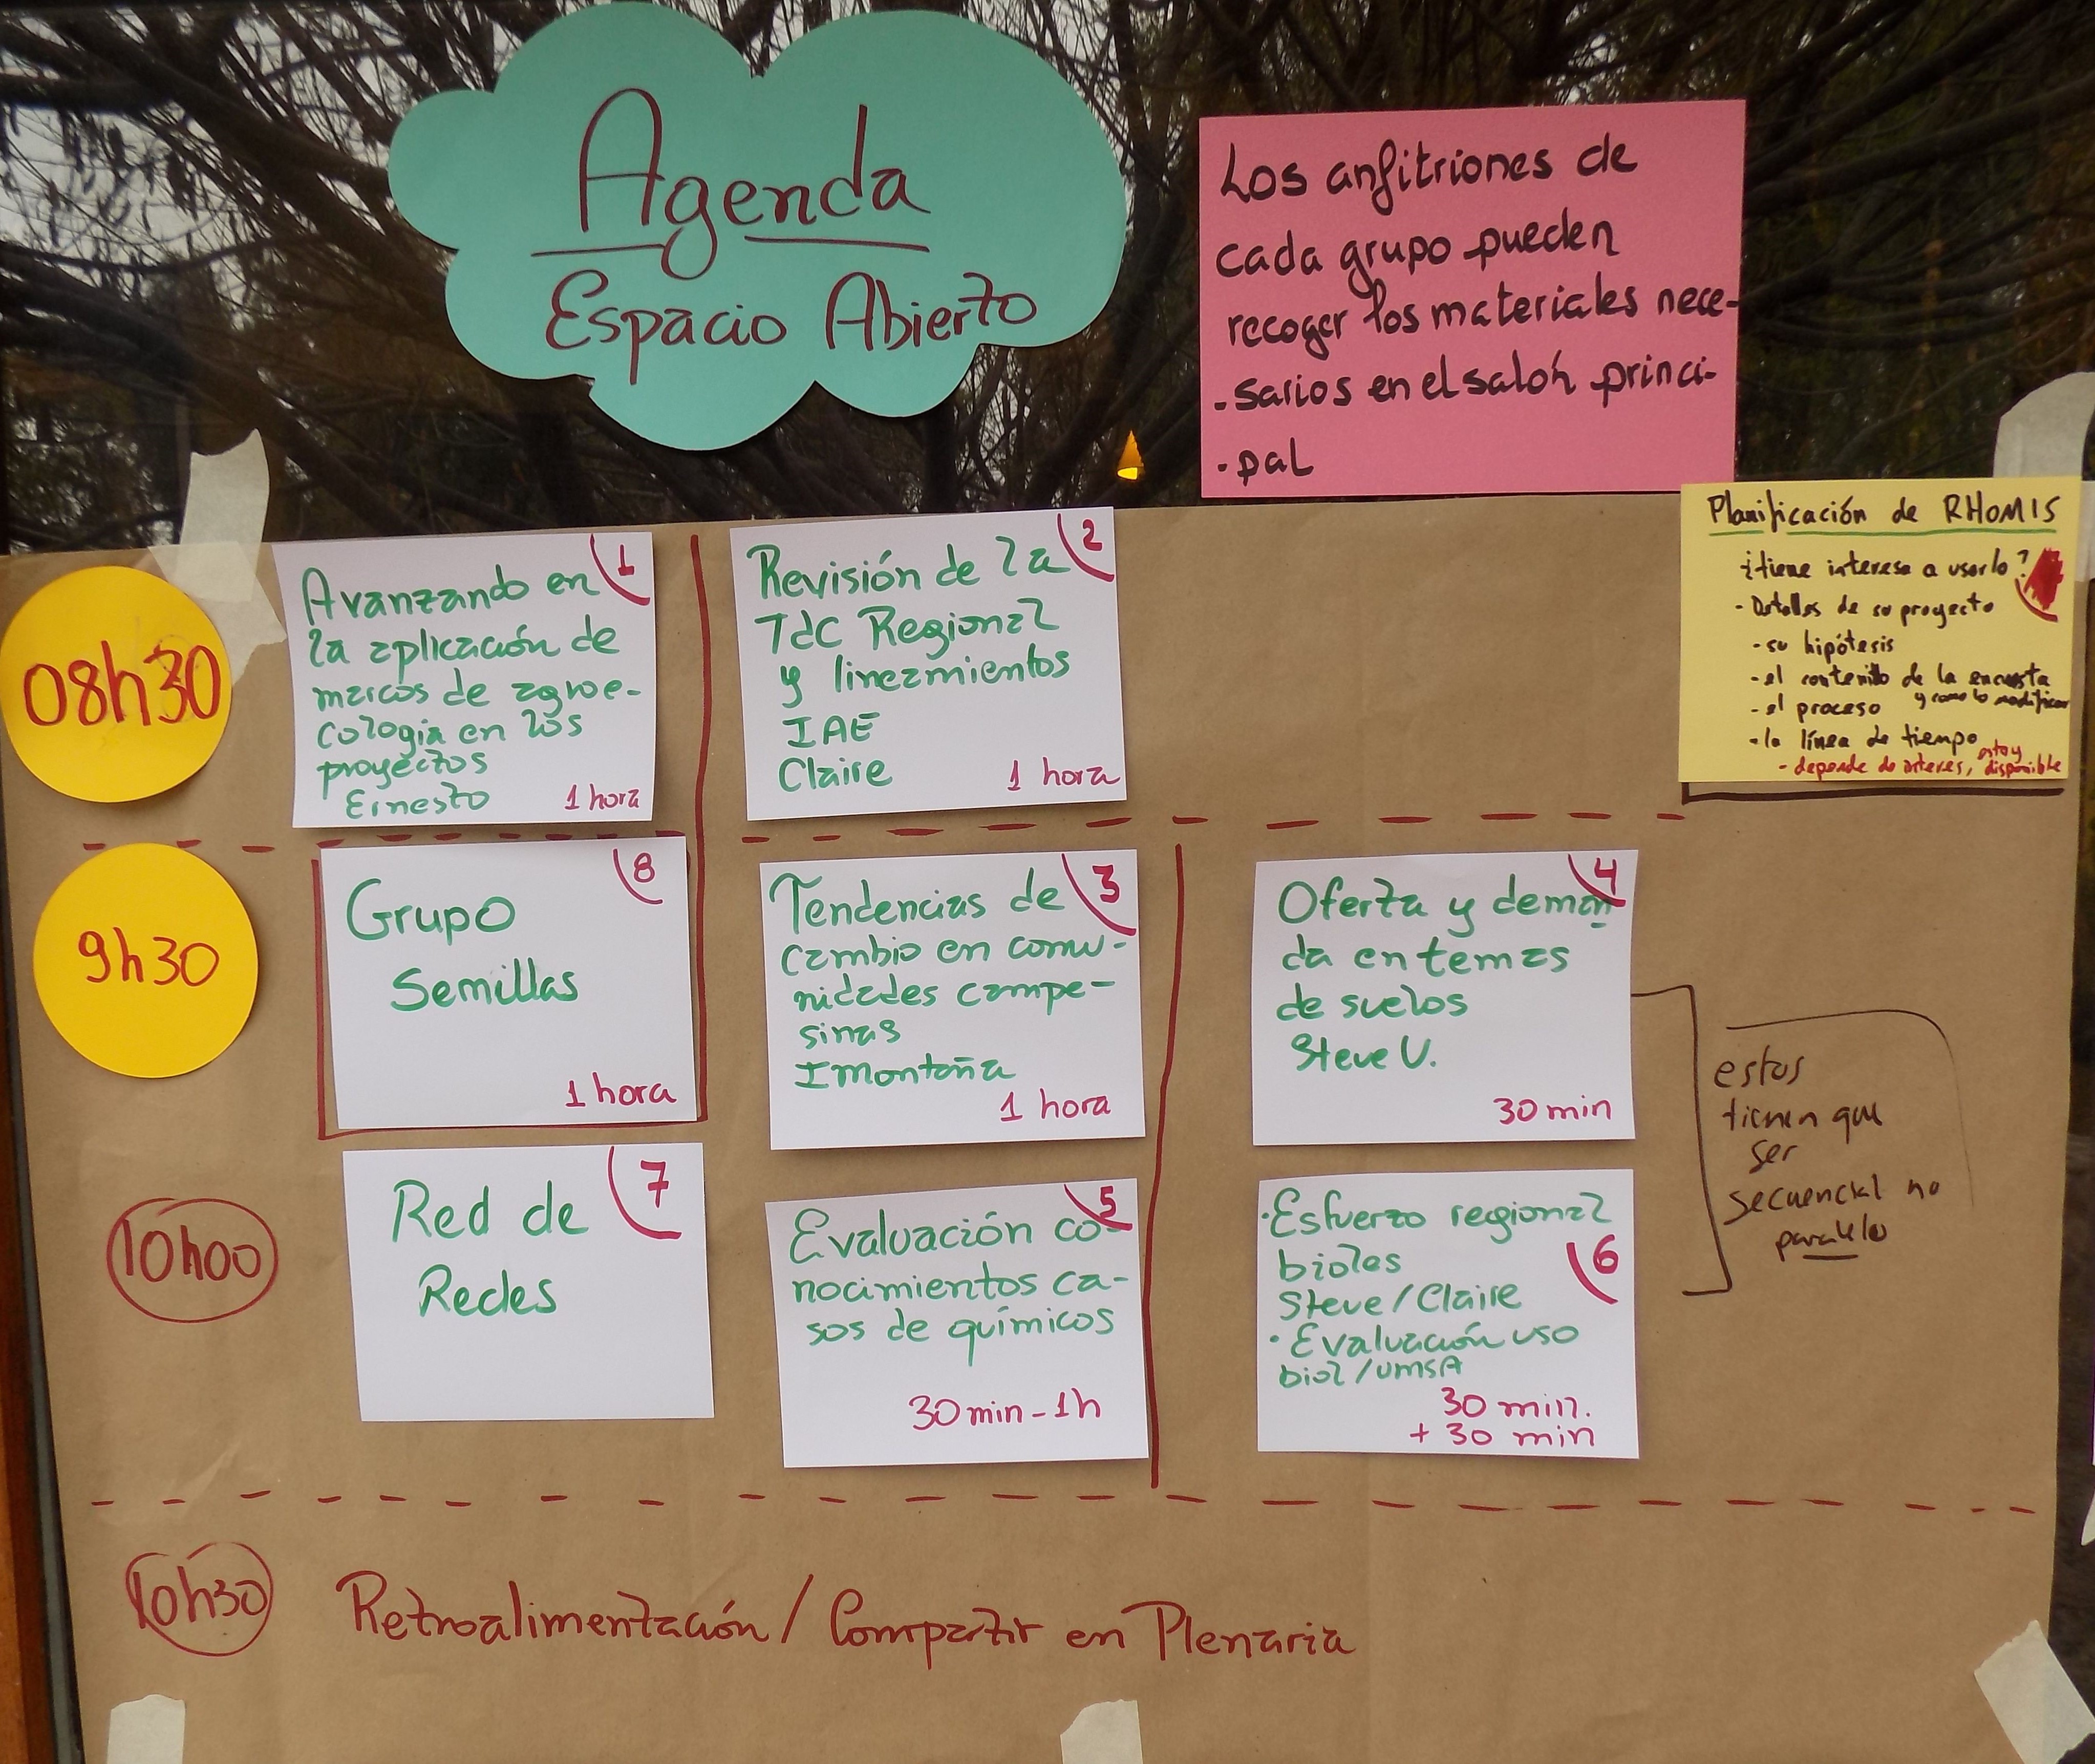 Agenda
Espacio Abierto
Los anfitriones de
cada grupo pueden
recoger los materiales nece-
-sarios en el salón princi-
-pal
Planificación de RHOMIS
¿tiene interese a usarlo?
- Detalles de su proyecto
- su hipótesis
- el contenido de la encuesta
y como lo modificar
- el proceso
- la línea de tiempo
- depende de interes, estoy disponible
08h30
1
Avanzando en
la aplicación de
marcos de agroe-
cología en los
proyectos
Ernesto
1 hora
2
Revisión de la
TdC Regional
y lineamientos
IAE
Claire
1 hora
9h30
8
Grupo
Semillas
1 hora
3
Tendencias de
cambio en comu-
nidades campe-
sinas
Imontaña
1 hora
4
Oferta y deman
da en temas
de suelos
Steve V.
30 min
estos
tienen que
ser
secuencial no
paralelo
10h00
7
Red de
Redes
5
Evaluación co-
nocimientos ca-
sos de químicos
30 min - 1h
6
• Esfuerzo regional
bioles
Steve / Claire
• Evaluación uso
biol / UMSA
30 min.
+ 30 min
10h30
Retroalimentación / Compartir en Plenaria